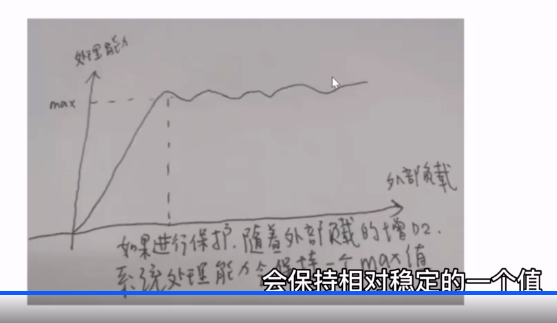 处理能力
max
外部负载
如果进行保护,随着外部负载的增加.
系统处理能力会保持一个max值
会保持相对稳定的一个值